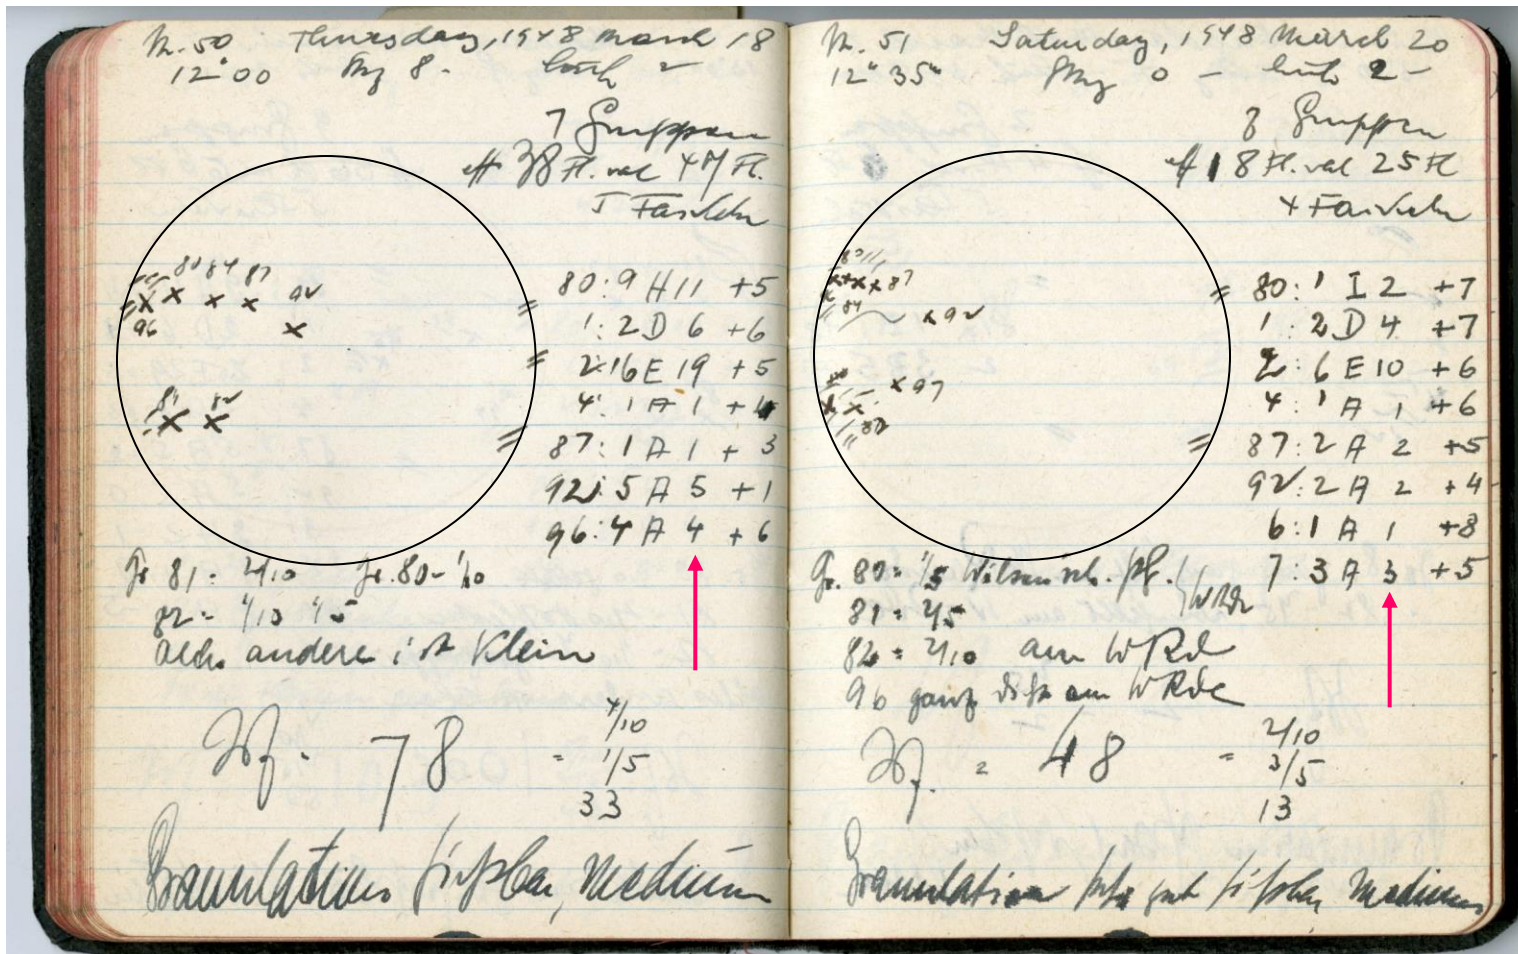 N. 50 Thursday, 1948 March 18
12 00 8. 2
7 Gruppen
eff 38 Fl. rel 47 Fl.
5 Fackeln
80 84 87
92
96
81 82
80: 9 H 11 +5
1: 2 D 6 +6
2: 16 E 19 +5
4: 1 A 1 +4
87: 1 A 1 +3
92: 5 A 5 +1
96: 4 A 4 +6
Gr. 81 = 2/10 Gr. 80 - 1/10
82 = 1/10 1/5
alles andere ist Klein
78 = 4/10
1/5
33
Granulation sichtbar, medium
N. 51 Saturday, 1948 March 20
12 35 0 - 2 -
8 Gruppen
eff 18 Fl. rel 25 Fl
4 Fackeln
87
84
92
97
82
80: 1 I 2 +7
1: 2 D 4 +7
2: 6 E 10 +6
4: 1 A 1 +6
87: 2 A 2 +5
92: 2 A 2 +4
6: 1 A 1 +8
7: 3 A 3 +5
Gr. 80 = 1/5 Wilson
81 = 2/5
82 = 2/10 am W Rd
96 ganz am W Rde
= 48 = 2/10
3/5
13
Granulation sehr gut sichtbar, medium